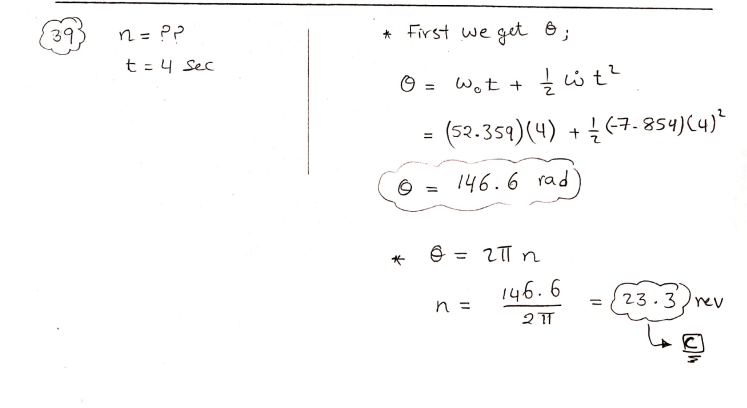 39 n = ??
t = 4 sec
* First we get θ;
θ = ω₀t + 1/2 ω̇ t²
= (52.359)(4) + 1/2 (-7.854)(4)²
θ = 146.6 rad
* θ = 2π n
n = 146.6 / 2π = 23.3 rev
C